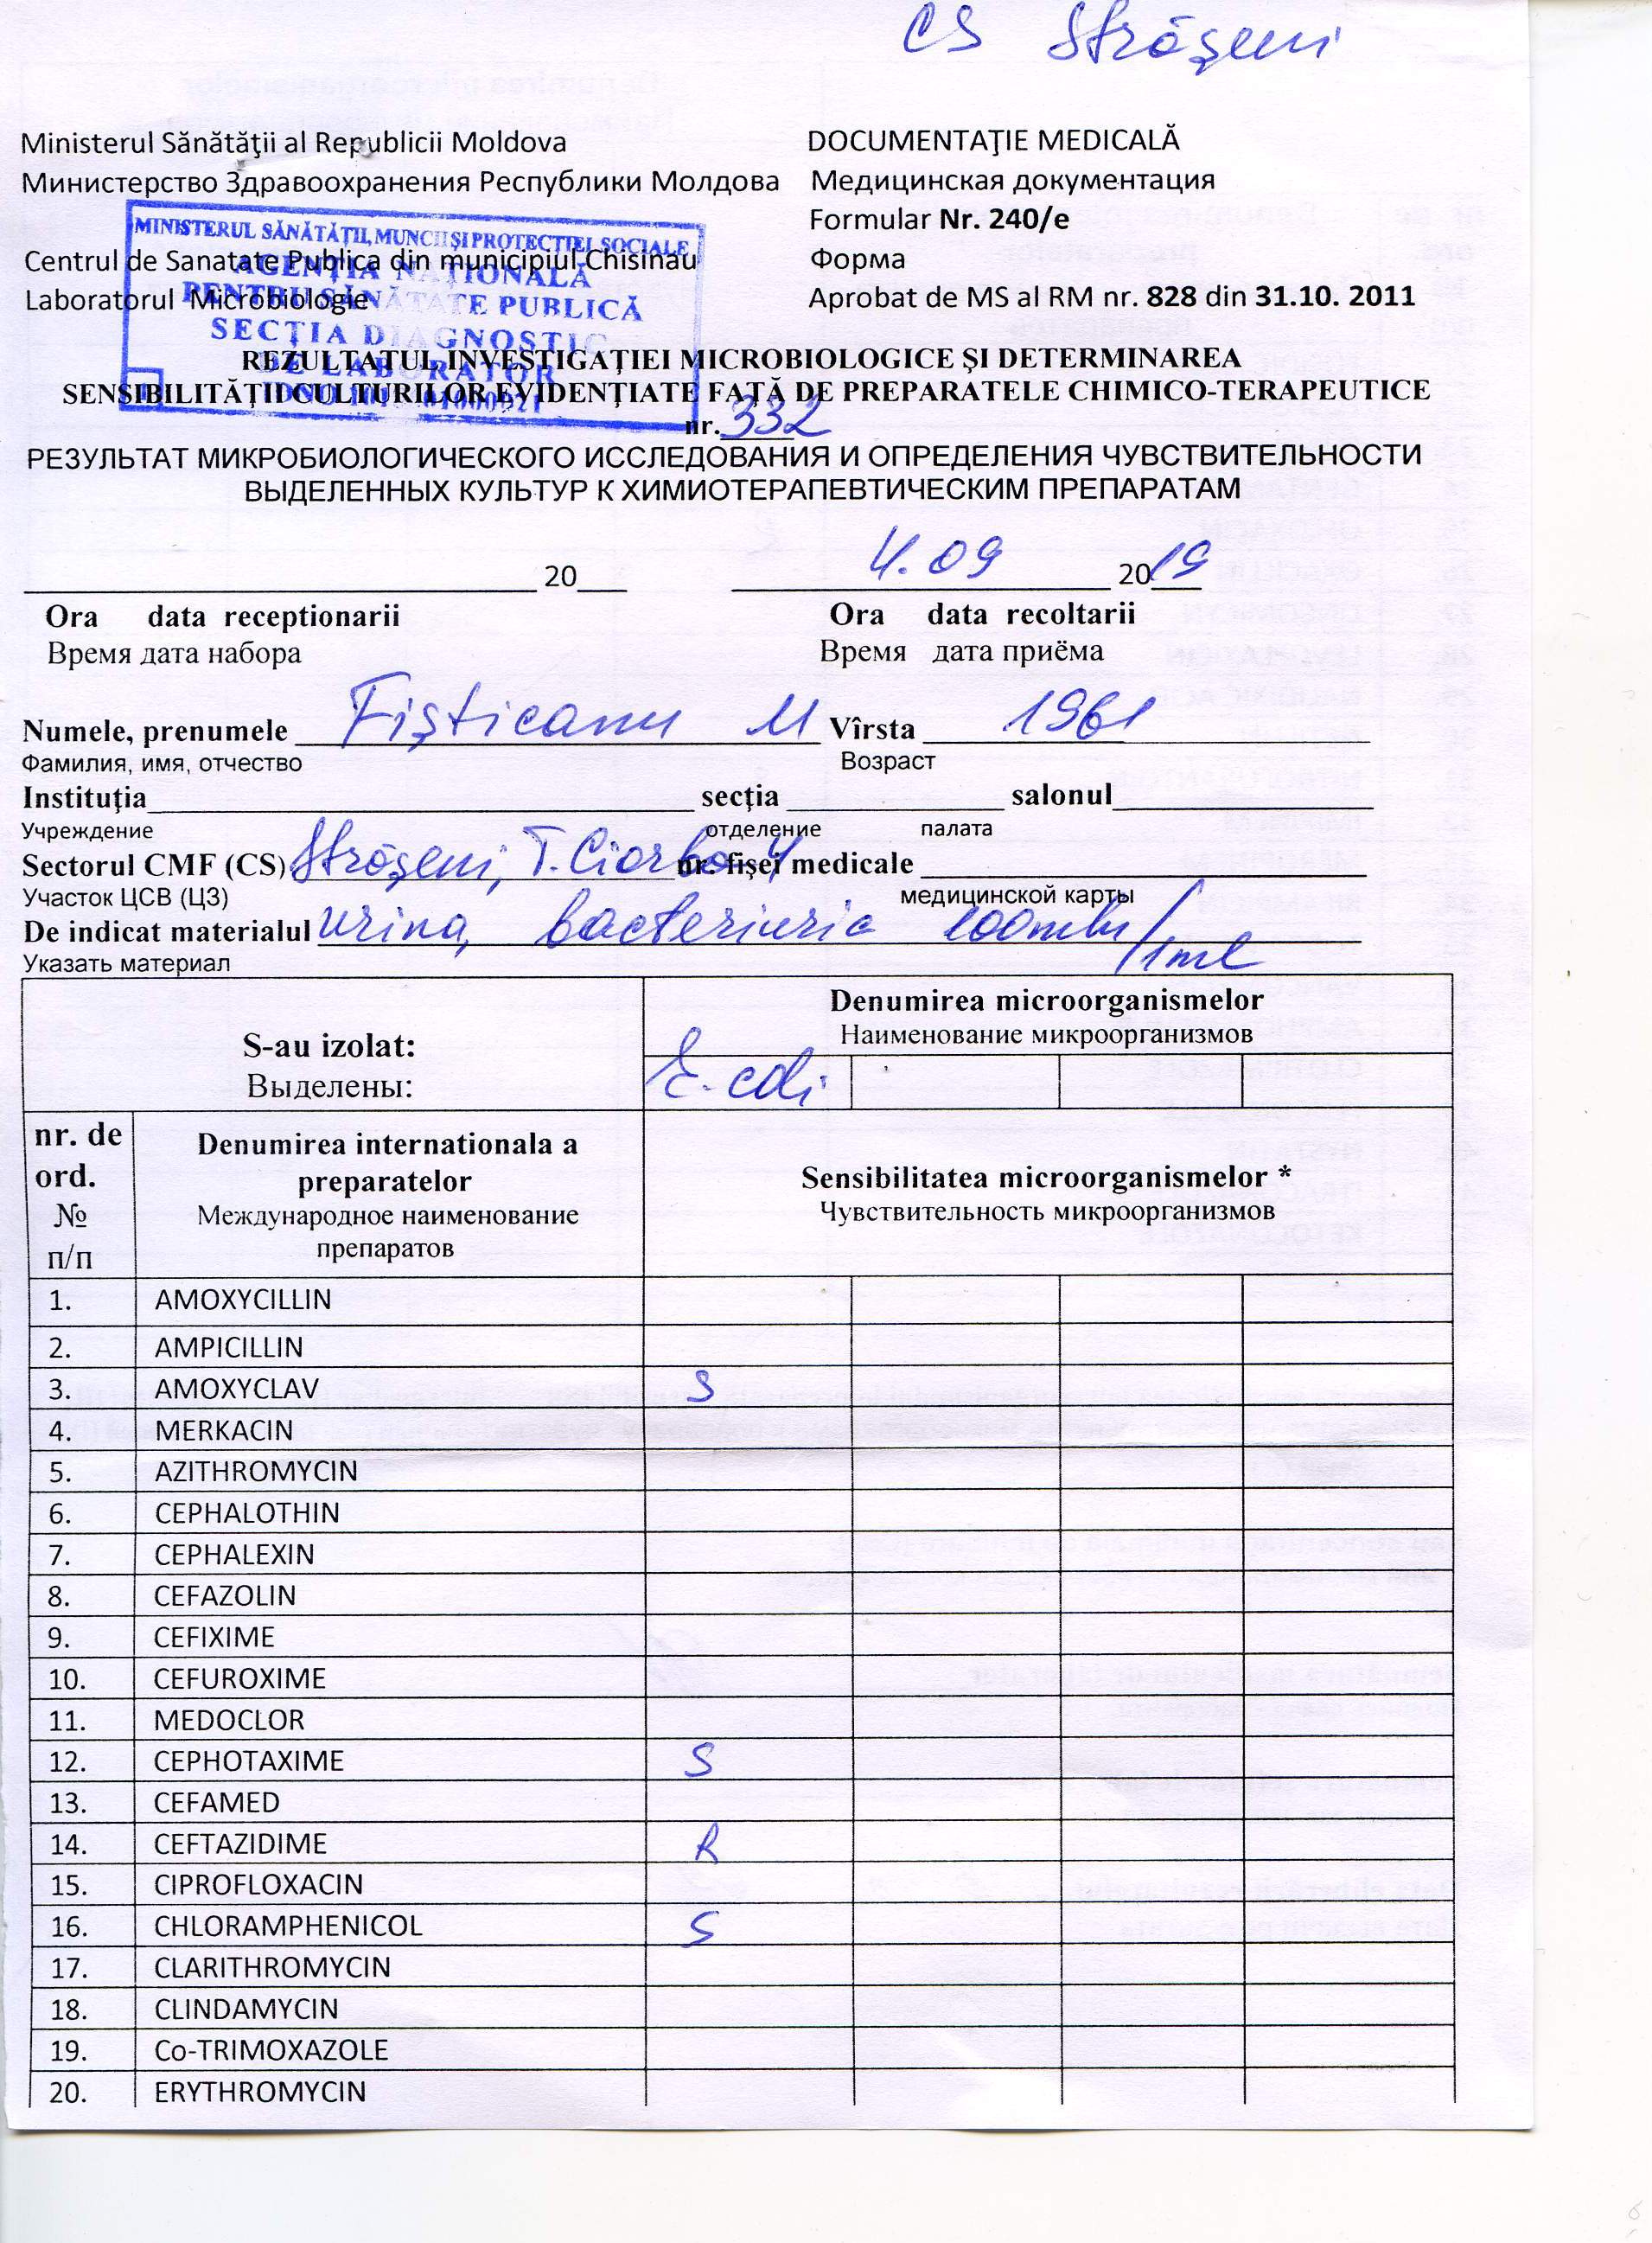 CS Strășeni
Ministerul Sănătăţii al Republicii Moldova
DOCUMENTAŢIE MEDICALĂ
Министерство Здравоохранения Республики Молдова
Медицинская документация
Formular Nr. 240/e
MINISTERUL SĂNĂTĂȚII, MUNCII ȘI PROTECȚIEI SOCIALE
Centrul de Sanatate Publica din municipiul Chisinau
Форма
AGENȚIA NAȚIONALĂ
Laboratorul Microbiologie
Aprobat de MS al RM nr. 828 din 31.10. 2011
PENTRU SĂNĂTATE PUBLICĂ
SECȚIA DIAGNOSTIC
DE LABORATOR
REZULTATUL INVESTIGAŢIEI MICROBIOLOGICE ŞI DETERMINAREA
SENSIBILITĂŢII CULTURILOR EVIDENŢIATE FAŢĂ DE PREPARATELE CHIMICO-TERAPEUTICE
IDNO
nr. 332
РЕЗУЛЬТАТ МИКРОБИОЛОГИЧЕСКОГО ИССЛЕДОВАНИЯ И ОПРЕДЕЛЕНИЯ ЧУВСТВИТЕЛЬНОСТИ
ВЫДЕЛЕННЫХ КУЛЬТУР К ХИМИОТЕРАПЕВТИЧЕСКИМ ПРЕПАРАТАМ
20 4.09 2019
Ora data receptionarii Ora data recoltarii
Время дата набора Время дата приёма
Numele, prenumele Fișticanu M Vîrsta 1961
Фамилия, имя, отчество Возраст
Instituţia secţia salonul
Учреждение отделение палата
Sectorul CMF (CS) Strășeni, T. Ciorba 4 nr. fişei medicale
Участок ЦСВ (ЦЗ) медицинской карты
De indicat materialul urina, bacteriuria 100 /1ml
Указать материал
S-au izolat:
Выделены:
Denumirea microorganismelor
Наименование микроорганизмов
E. coli
nr. de ord.
№
п/п
Denumirea internationala a
preparatelor
Международное наименование
препаратов
Sensibilitatea microorganismelor *
Чувствительность микроорганизмов
1. AMOXYCILLIN
2. AMPICILLIN
3. AMOXYCLAV S
4. MERKACIN
5. AZITHROMYCIN
6. CEPHALOTHIN
7. CEPHALEXIN
8. CEFAZOLIN
9. CEFIXIME
10. CEFUROXIME
11. MEDOCLOR
12. CEPHOTAXIME S
13. CEFAMED
14. CEFTAZIDIME R
15. CIPROFLOXACIN
16. CHLORAMPHENICOL S
17. CLARITHROMYCIN
18. CLINDAMYCIN
19. Co-TRIMOXAZOLE
20. ERYTHROMYCIN